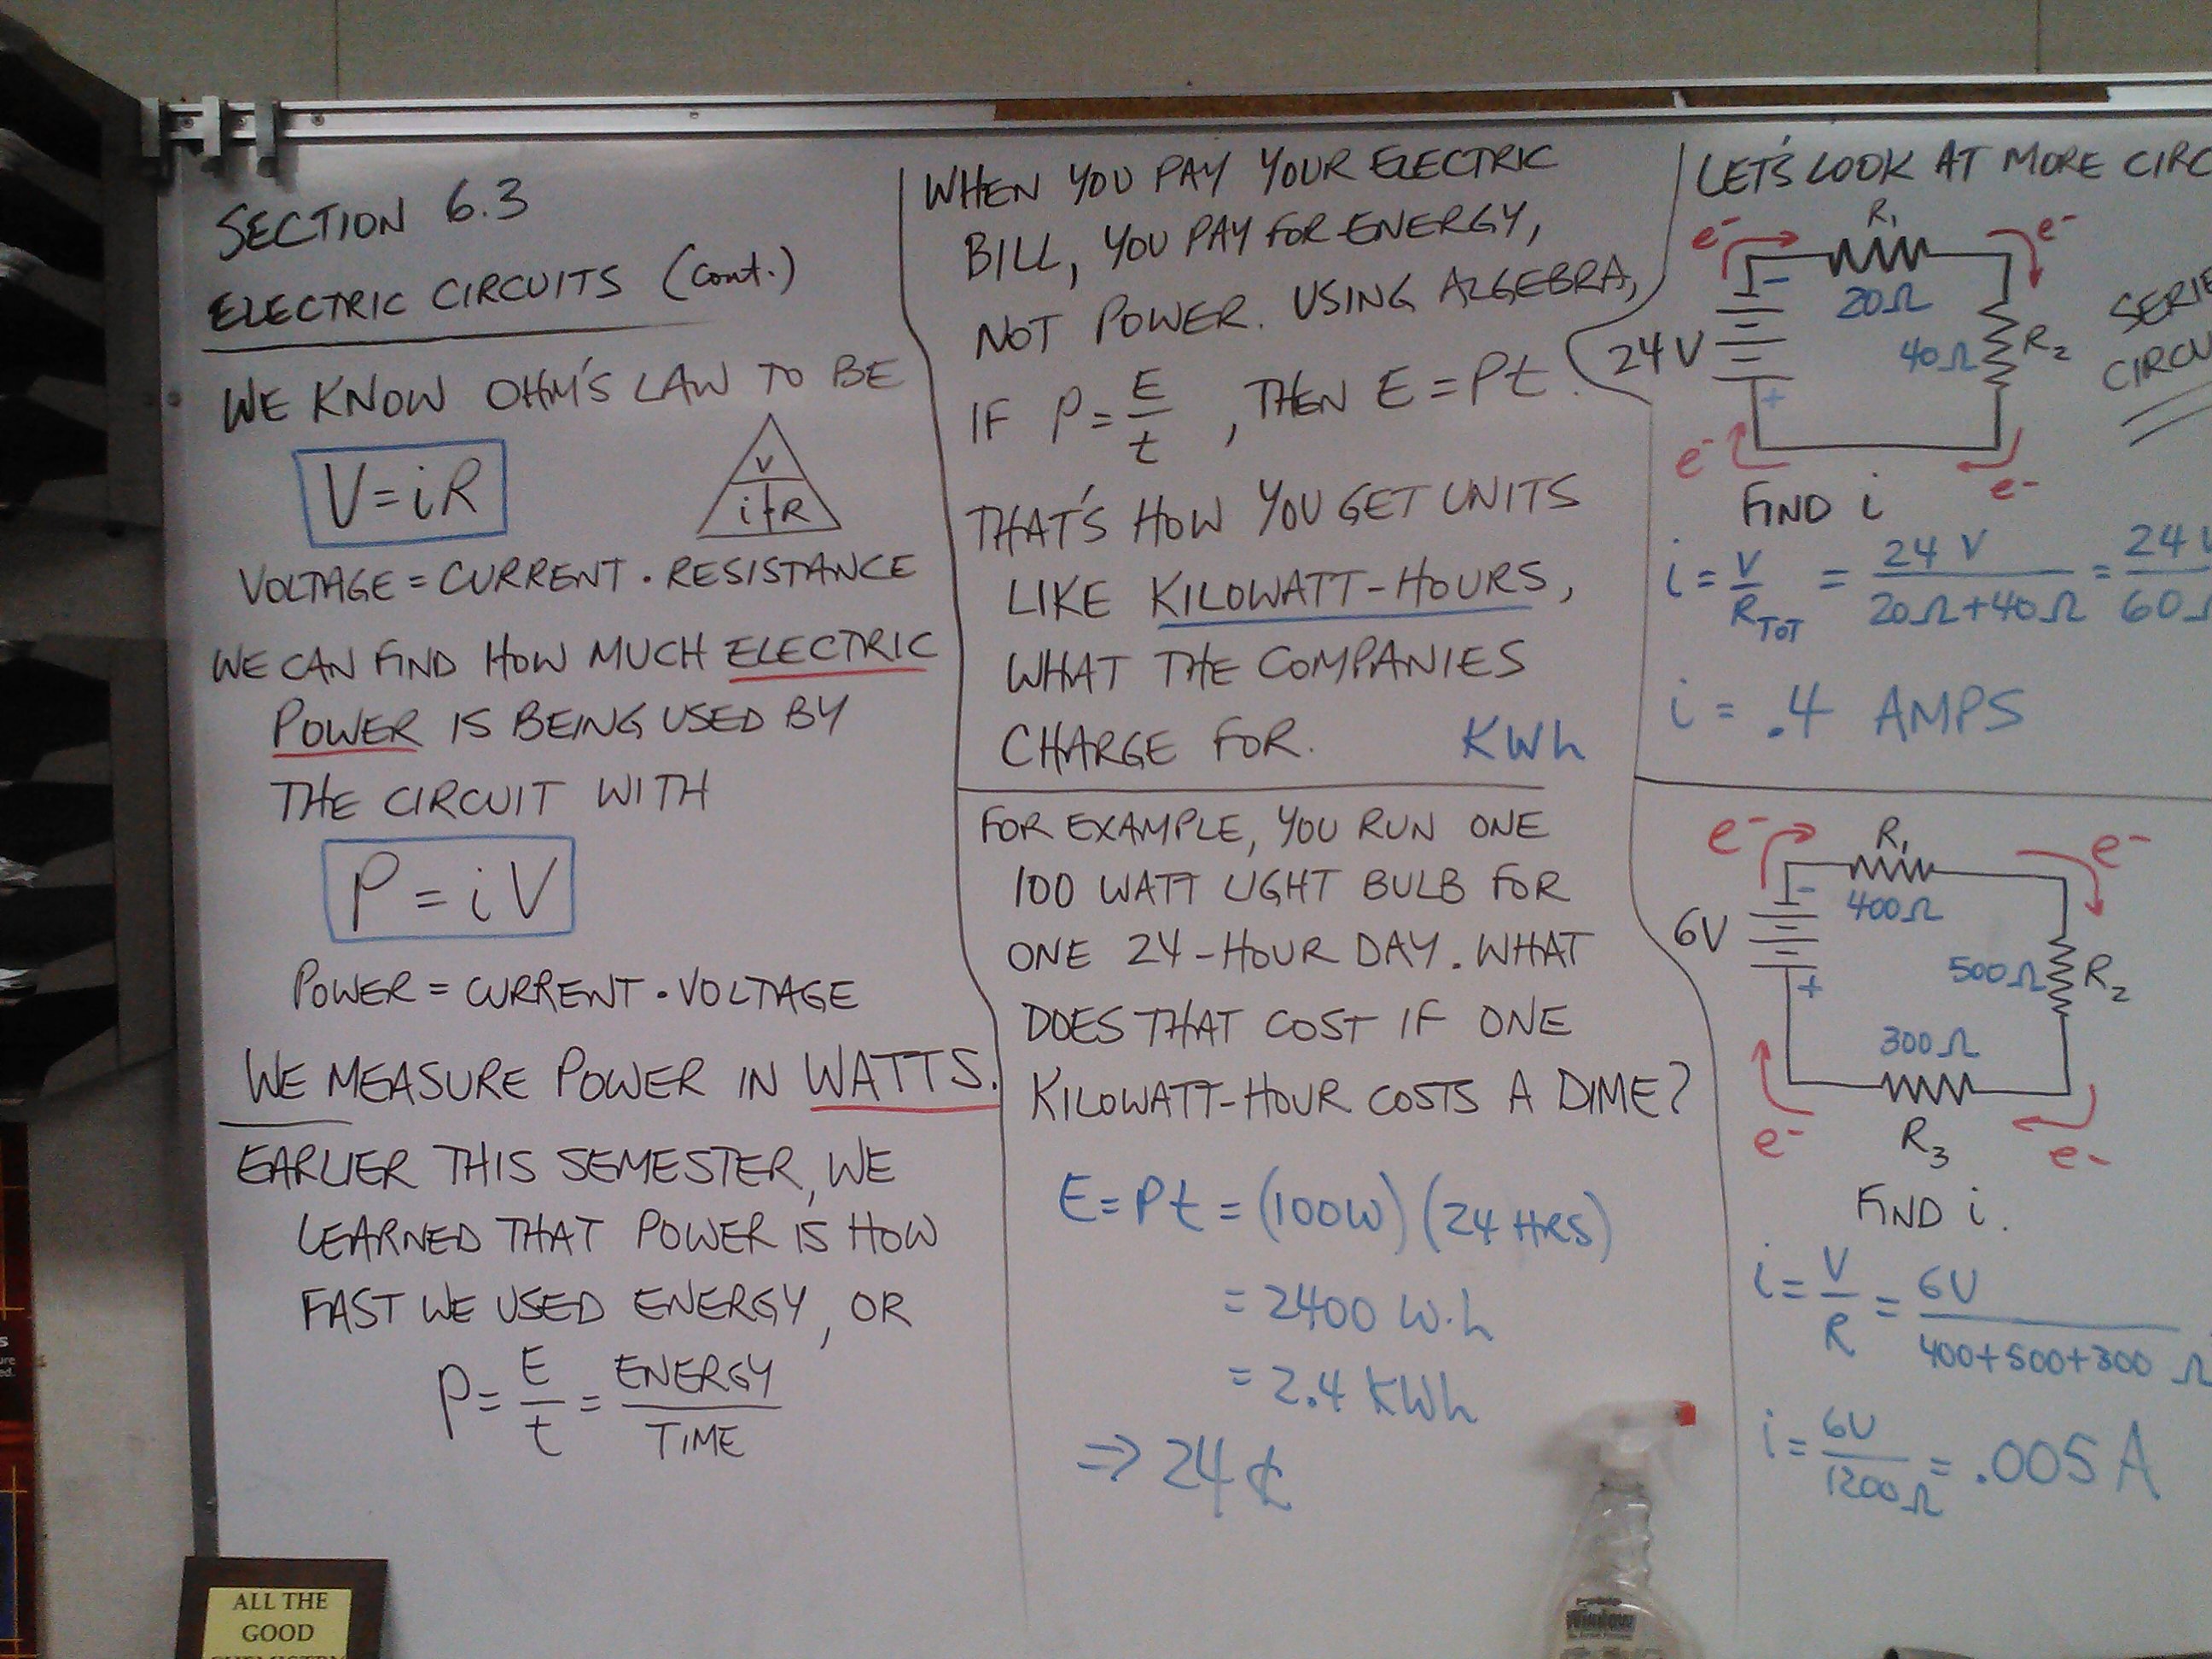 SECTION 6.3
ELECTRIC CIRCUITS (cont.)
WE KNOW OHM'S LAW TO BE
V = iR
V
i R
VOLTAGE = CURRENT • RESISTANCE
WE CAN FIND HOW MUCH ELECTRIC
POWER IS BEING USED BY
THE CIRCUIT WITH
P = iV
POWER = CURRENT • VOLTAGE
WE MEASURE POWER IN WATTS.
EARLIER THIS SEMESTER, WE
LEARNED THAT POWER IS HOW
FAST WE USED ENERGY, OR
P = E/t = ENERGY/TIME
WHEN YOU PAY YOUR ELECTRIC
BILL, YOU PAY FOR ENERGY,
NOT POWER. USING ALGEBRA,
IF P = E/t, THEN E = Pt.
THAT'S HOW YOU GET UNITS
LIKE KILOWATT-HOURS,
WHAT THE COMPANIES
CHARGE FOR. KWh
FOR EXAMPLE, YOU RUN ONE
100 WATT LIGHT BULB FOR
ONE 24-HOUR DAY. WHAT
DOES THAT COST IF ONE
KILOWATT-HOUR COSTS A DIME?
E = Pt = (100W)(24 HRS)
= 2400 W·h
= 2.4 KWh
⇒ 24¢
LET'S LOOK AT MORE CIRC
e- R₁ e-
- 20Ω
24V 40Ω R₂
+
e- e-
SERIE
CIRCU
FIND i
i = V/R TOT = 24 V/20Ω+40Ω = 24 V/60Ω
i = .4 AMPS
e- R₁ e-
- 400Ω
6V 500Ω R₂
+
300Ω
e- R₃ e-
FIND i.
i = V/R = 6V/400+500+300 Ω
i = 6V/1200Ω = .005 A
ALL THE
GOOD
CHEMISTRY
Window